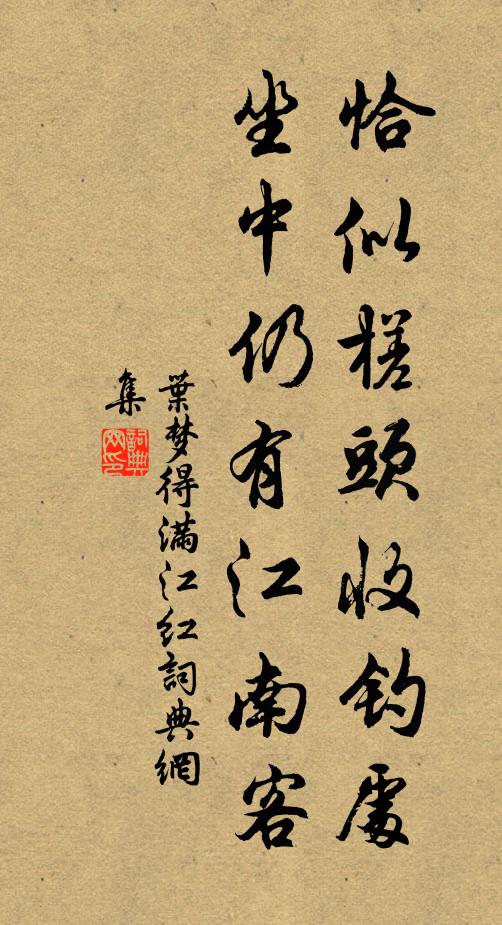 恰似槎頭收釣處
坐中仍有江南客
葉梦得滿江红詞典網
集
詞典網印